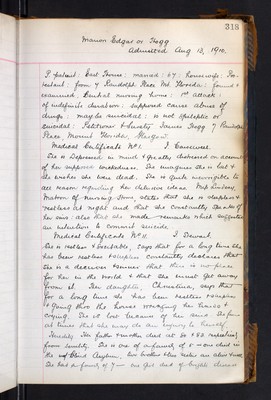 318
Marion Edgar or Hogg
Admitted Aug 13, 1910.
P. patient: East House: married: 67: housewife: Pro-
testant: from 7 Randolph Place Mt. Florida: found &
examined Central nursing home: 1st attack:
of indefinite duration: supposed cause abuse of
drugs: maybe suicidal: is not epileptic or
suicidal: Petitioner & husband James Hogg 7 Randolph
Place, Mount Florida, Glasgow.
Medical Certificate No I. J. Carswell.
She is depressed in mind & greatly distressed on account
of her supposed wickedness. She imagines she is lost &
she wishes she was dead. She is quite unamenable to
all reason regarding her delusive ideas. Mrs Lindsay,
Matron of nursing Home, states that she is sleepless &
restless at night and that she constantly speaks of
her sins: also that she made remarks which suggested
an intention to commit suicide.
Medical Certificate No II. J. Dewar.
She is restless & excitable, says that for a long time she
has been restless & sleepless constantly declares that
she is a deceiver & sinner that there is no place
for her in the world & that she must get away
from it. Her daughter, Christina, says that
for a long time she has been restless & sleepless
& going thro the house wringing her hands &
crying. She is lost because of her sins. She fears
at times that she may do an injury to herself.
Heredity. Her father & mother died at 80 & 83 respectively
from senility. She is one of a family of 8 — one died in
the Asylum, two brothers & two sisters are alive & well.
She had a family of 7 — one girl died of